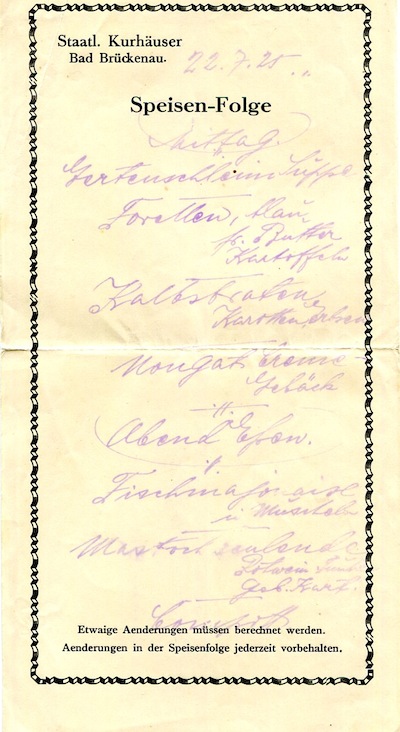 Staatl. Kurhäuser
Bad Brückenau.
22.7.25.
Speisen-Folge
Mittag.
Gerstenschleim Suppe
Forellen, blau
fr. Butter
Kartoffeln
Kalbsbraten
Karotten, Erbsen
Nougat Creme
Gebäck
Abend Essen.
Fischmajonaise
in Muscheln
Mastochsenlende
Rotwein
geb. Kart.
Compott
Etwaige Aenderungen müssen berechnet werden.
Aenderungen in der Speisenfolge jederzeit vorbehalten.